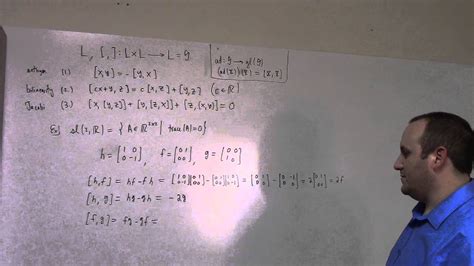 L, [,]: L×L → L = g
ad: g → gl(g)
(ad(x))(y) = [x, y]
(1.) [x,y] = -[y,x]
bilinearity (2.) [cx+y, z] = c[x,z] + [y,z] (c∈ℝ)
Jacobi (3.) [x,[y,z]] + [y,[z,x]] + [z,[x,y]] = 0
Ex sl(2,ℝ) = { A∈ℝ²ˣ² | trace(A)=0 }
h = [1 0; 0 -1] f = [0 1; 0 0] g = [0 0; 1 0]
[h,f] = hf - fh = [1 0; 0 -1][0 1; 0 0] - [0 1; 0 0][1 0; 0 -1] = [0 1; 0 0] - [0 -1; 0 0] = 2[0 1; 0 0] = 2f
[h,g] = hg - gh = -2g
[f,g] = fg - gf =